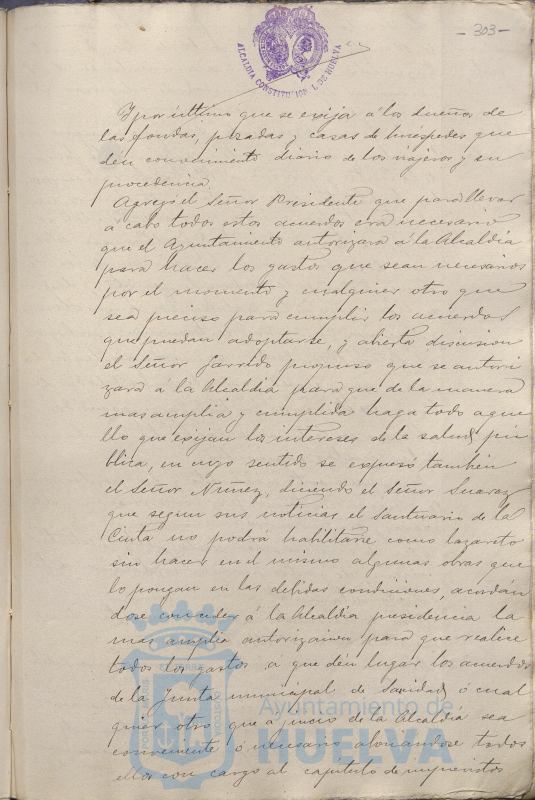 - 303 -
ALCALDIA CONSTITUCIONAL DE HUELVA
Y por último que se exija á los dueños de
las fondas, posadas y casas de huespedes que
dén conocimiento diario de los viajeros y su
procedencia.
Agregó el Señor Presidente que para llevar
á cabo todos estos acuerdos era necesario
que el Ayuntamiento autorizara á la Alcaldia
para hacer los gastos que sean necesarios
por el momento y cualquier otro que
sea preciso para cumplir los acuerdos
que puedan adoptarse, y abierta discusion
el Señor Garrido propuso que se autori
zara á la Alcaldia para que de la manera
mas amplia y cumplida haga todo aque
llo que exijan los intereses de la salud pú
blica, en cuyo sentido se expresó tambien
el Señor Nuñez, diciendo el Señor Suarez
que segun sus noticias el Santuario de la
Cinta no podrá habilitarse como lazareto
sin hacer en el mismo algunas obras que
lo pongan en las debidas condiciones, acordán
dose conceder á la Alcaldia presidencia la
mas amplia autorizacion para que realice
todos los gastos a que dén lugar los acuerdos
de la Junta municipal de Sanidad ó cual
quier otro que a juicio de la Alcaldia sea
conveniente ó necesario abonandose todos
ellos con cargo al capítulo de imprevistos
Ayuntamiento de
HUELVA